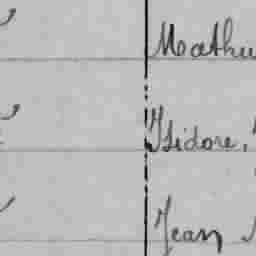 Mathu
Isidore,
Jean